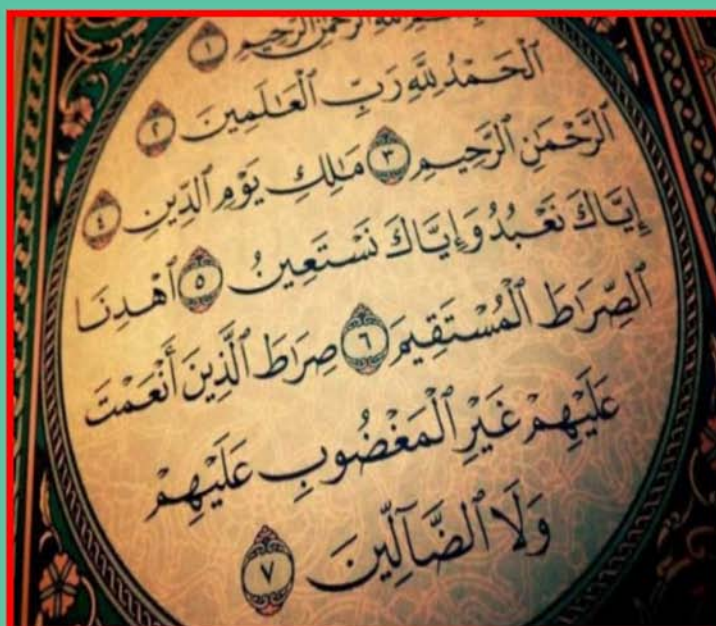 ٱللَّهِ ٱلرَّحْمَٰنِ ٱلرَّحِيمِ ١
ٱلْحَمْدُ لِلَّهِ رَبِّ ٱلْعَٰلَمِينَ ٢
ٱلرَّحْمَٰنِ ٱلرَّحِيمِ ٣ مَٰلِكِ يَوْمِ ٱلدِّينِ ٤
إِيَّاكَ نَعْبُدُ وَإِيَّاكَ نَسْتَعِينُ ٥ ٱهْدِنَا
ٱلصِّرَٰطَ ٱلْمُسْتَقِيمَ ٦ صِرَٰطَ ٱلَّذِينَ أَنْعَمْتَ
عَلَيْهِمْ غَيْرِ ٱلْمَغْضُوبِ عَلَيْهِمْ
وَلَا ٱلضَّآلِّينَ ٧